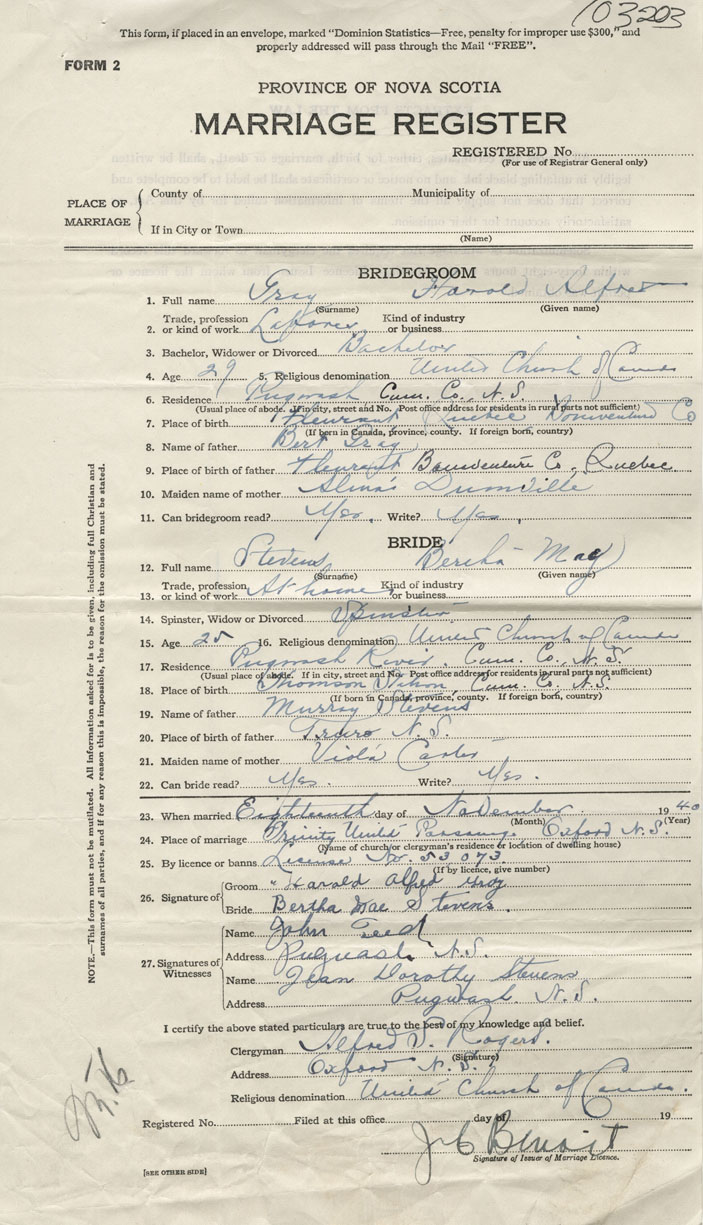 103203
This form, if placed in an envelope, marked "Dominion Statistics—Free, penalty for improper use $300," and
properly addressed will pass through the Mail "FREE".
FORM 2
PROVINCE OF NOVA SCOTIA
MARRIAGE REGISTER
REGISTERED No.
(For use of Registrar General only)
PLACE OF MARRIAGE
County of Municipality of
If in City or Town
(Name)
BRIDEGROOM
1. Full name Gray Harold Alfred
(Surname) (Given name)
Trade, profession Kind of industry
2. or kind of work Laborer or business
3. Bachelor, Widower or Divorced Bachelor
4. Age 29 5. Religious denomination United Church of Canada
6. Residence Pugwash Cum. Co., N.S.
(Usual place of abode. If in city, street and No. Post office address for residents in rural parts not sufficient)
7. Place of birth Fleurant Quebec Bonaventure Co
(If born in Canada, province, county. If foreign born, country)
8. Name of father Bert Gray
9. Place of birth of father Fleurant Bonaventure Co., Quebec
10. Maiden name of mother Dumville
11. Can bridegroom read? Yes. Write? Yes.
BRIDE
12. Full name Stevens Bertha May
(Surname) (Given name)
Trade, profession Kind of industry
13. or kind of work At home or business
14. Spinster, Widow or Divorced Spinster
15. Age 25 16. Religious denomination United Church of Canada
17. Residence Pugwash River, Cum. Co., N.S.
(Usual place of abode. If in city, street and No. Post office address for residents in rural parts not sufficient)
18. Place of birth Thomson Cum. Co. N.S.
(If born in Canada, province, county. If foreign born, country)
19. Name of father Murray Stevens
20. Place of birth of father Truro N.S.
21. Maiden name of mother Viola Carter
22. Can bride read? Yes. Write? Yes.
23. When married Eighteenth day of November 1940
(Month) (Year)
24. Place of marriage Trinity United Parsonage, Oxford N.S.
(Name of church/or clergyman's residence or location of dwelling house)
25. By licence or banns License No. 53073
(If by licence, give number)
26. Signature of
Groom Harold Alfred Gray
Bride Bertha Mae Stevens.
27. Signatures of Witnesses
Name John Teed
Address Pugwash, N.S.
Name Jean Dorothy Stevens
Address Pugwash. N.S.
I certify the above stated particulars are true to the best of my knowledge and belief.
Clergyman Alfred Rogers.
(Signature)
Address Oxford N.S.
Religious denomination United Church of Canada.
Registered No. Filed at this office day of 19
J C Benoit
Signature of Issuer of Marriage Licence.
[SEE OTHER SIDE]
NOTE.—This form must not be mutilated. All information asked for is to be given, including full Christian and
surnames of all parties, and if for any reason this is impossible, the reason for the omission must be stated.